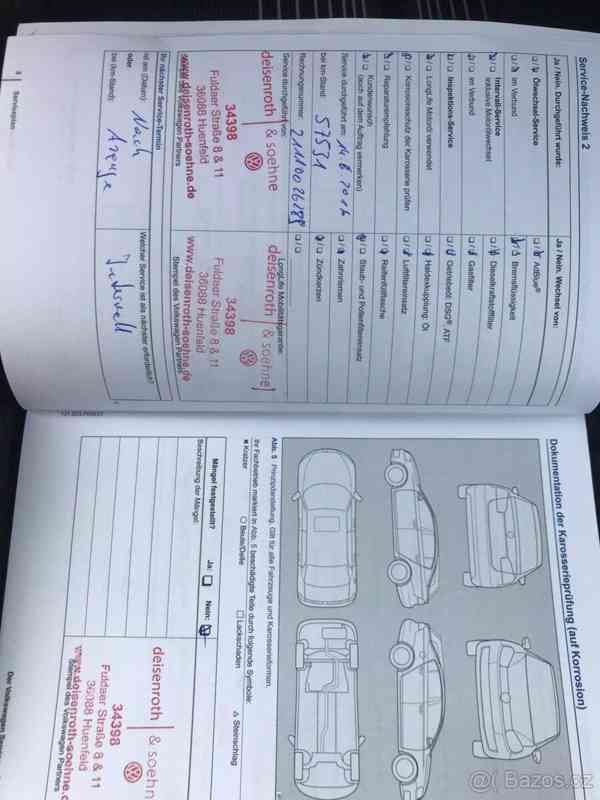 Service-Nachweis 2
Ja / Nein: Durchgeführt wurde:
Ölwechsel-Service
im Verbund
Intervall-Service
inklusive Motorölwechsel
im Verbund
Inspektions-Service
LongLife Motoröl verwendet
Korrosionsschutz der Karosserie prüfen
Reparaturempfehlung
Kundenwunsch
(auch auf dem Auftrag vermerken)
Service durchgeführt am:
bei km-Stand: 57531
Rechnungsnummer:
Service durchgeführt von:
deisenroth
& soehne
34398
Fuldaer Straße 8 & 11
36088 Huenfeld
www.deisenroth-soehne.de
Stempel des Volkswagen Partners
Ihr nächster Service-Termin
ist am (Datum):
oder
bei (km-Stand):
Nach
Anzeige
Ja / Nein: Wechsel von:
AdBlue®
Bremsflüssigkeit
Dieselkraftstofffilter
Gasfilter
Getriebeöl: DSG®, ATF
Haldexkupplung: Öl
Luftfiltereinsatz
Reifenfüllflasche
Staub- und Pollenfiltereinsatz
Zahnriemen
Zündkerzen
LongLife Mobilitätsgarantie:
deisenroth
& soehne
34398
Fuldaer Straße 8 & 11
36088 Huenfeld
www.deisenroth-soehne.de
Stempel des Volkswagen Partners
Welcher Service ist als nächster erforderlich?
8 Serviceplan
Dokumentation der Karosserieprüfung (auf Korrosion)
Abb. 5 Prinzipdarstellung. Gilt für alle Fahrzeuge und Karosserieformen.
Ihr Fachbetrieb markiert in Abb. 5 beschädigte Teile durch folgende Symbole:
Kratzer
Beule/Delle
Lackschaden
Steinschlag
Mängel festgestellt? Ja: Nein:
Beschreibung der Mängel:
deisenroth
& soehn
34398
Fuldaer Straße 8 & 11
36088 Huenfeld
www.deisenroth-soehne.d
Stempel des Volkswagen Partners
Bazos.cz